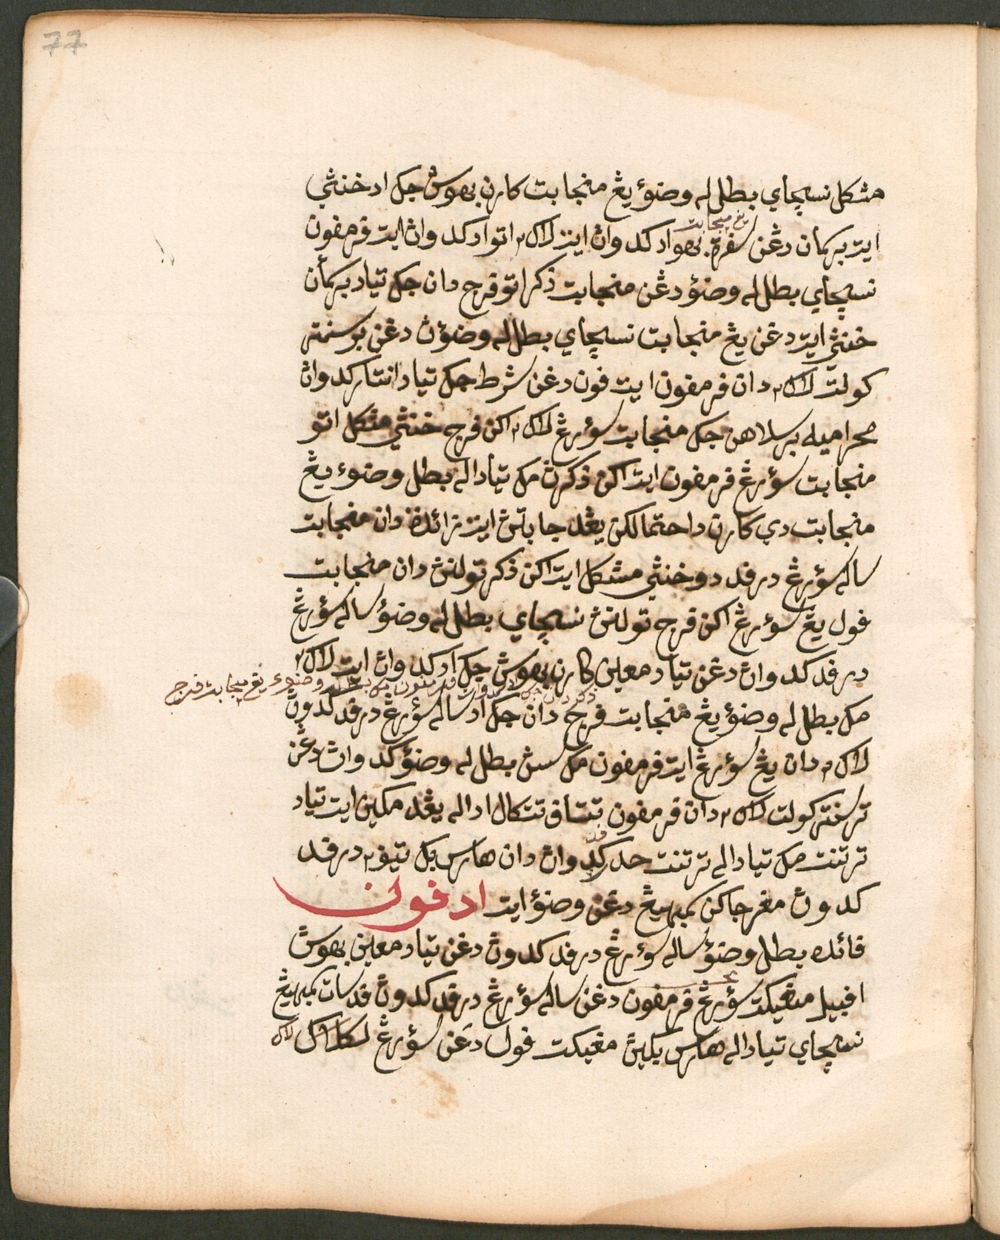 77
مشكل نسچاي بطل له وضوء يڠ منجابت كارن بهوسڽ جك اد خنثي
ايت برمان دڠن سفرة بهو اد كدوان ايت لاك٢ اتو اد كدوان ايت فرمفون
يڠ منجابت
نسچاي بطل له وضؤ دڠن منجابت ذكر اتو فرج دان جك تياد برمان
خنثي ايت دڠن يڠ منجابت نسچاي بطل له وضؤن دڠن برسنته
كولت لاك٢ دان فرمفون ايت فون دڠن شرط جك تياد انتار كدوان
محراميه برسلاهن جك منجابت سؤرڠ لاك٢ اكن فرج خنثي مشكل اتو
منجابت سؤرڠ فرمفون ايت اكن ذكرن مك تياداله بطل وضوء يڠ
منجابت دي كارن داحتمالكن يڠد جابتڽ ايت زائدة دان منجابت
ساله سؤرڠ درفد دو خنثي مشكل ايت اكن ذكر تولنڽ دان منجابت
فول يڠ سؤرڠ اكن فرج تولنڽ نسچاي بطل له وضؤ ساله سؤرڠ
درفد كدوان دڠن تياد معين كارن بهوسڽ جك اد كدوان ايت لاك٢
وضوء يڠ منجابت فرج
مك بطل له وضؤ يڠ منجابت فرج دان جك اد ساله سؤرڠ درفد كدوڽ
لاك٢ دان يڠ سؤرڠ ايت فرمفون مك سن بطل له وضؤ كدوان دڠن
ترسنته كولت لاك٢ دان فرمفون تتاف تتكال اداله يڠد مكين ايت تياد
ترتنت مك تياداله ترتنت حدث كدوان دان هارس بك تيف٢ درفد
كدوڽ مڠرجاكن سمبهيڠ دڠن وضؤ ايت ادفون
فائده بطل وضؤ ساله سؤرڠ درفد كدوڽ دڠن تياد معين بهوسڽ
افبيل مڠيكت سؤرڠ فرمفون دڠن ساله سؤرڠ درفد كدوڽ فد سات سمبهيڠ
نسچاي تياداله هارس بكين مڠيكت فول دڠن سؤرڠ لاك